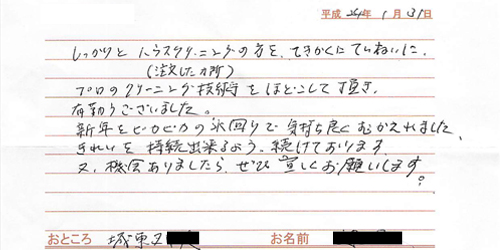 平成24年1月31日
しっかりとハウスクリーニングの方を、てきかくにていねいに、
(注文した カ所)
プロのクリーニング技術をほどこして頂き、
有難うございました。
新年をピカピカの水回りで気持ち良くむかえれました、
きれいを持続出来るよう、続けております
又、機会ありましたら、ぜひ宜しくお願いします。
おところ 城東
お名前